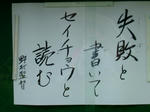 失敗と
書いて
セイチョウと
読む
野村監督